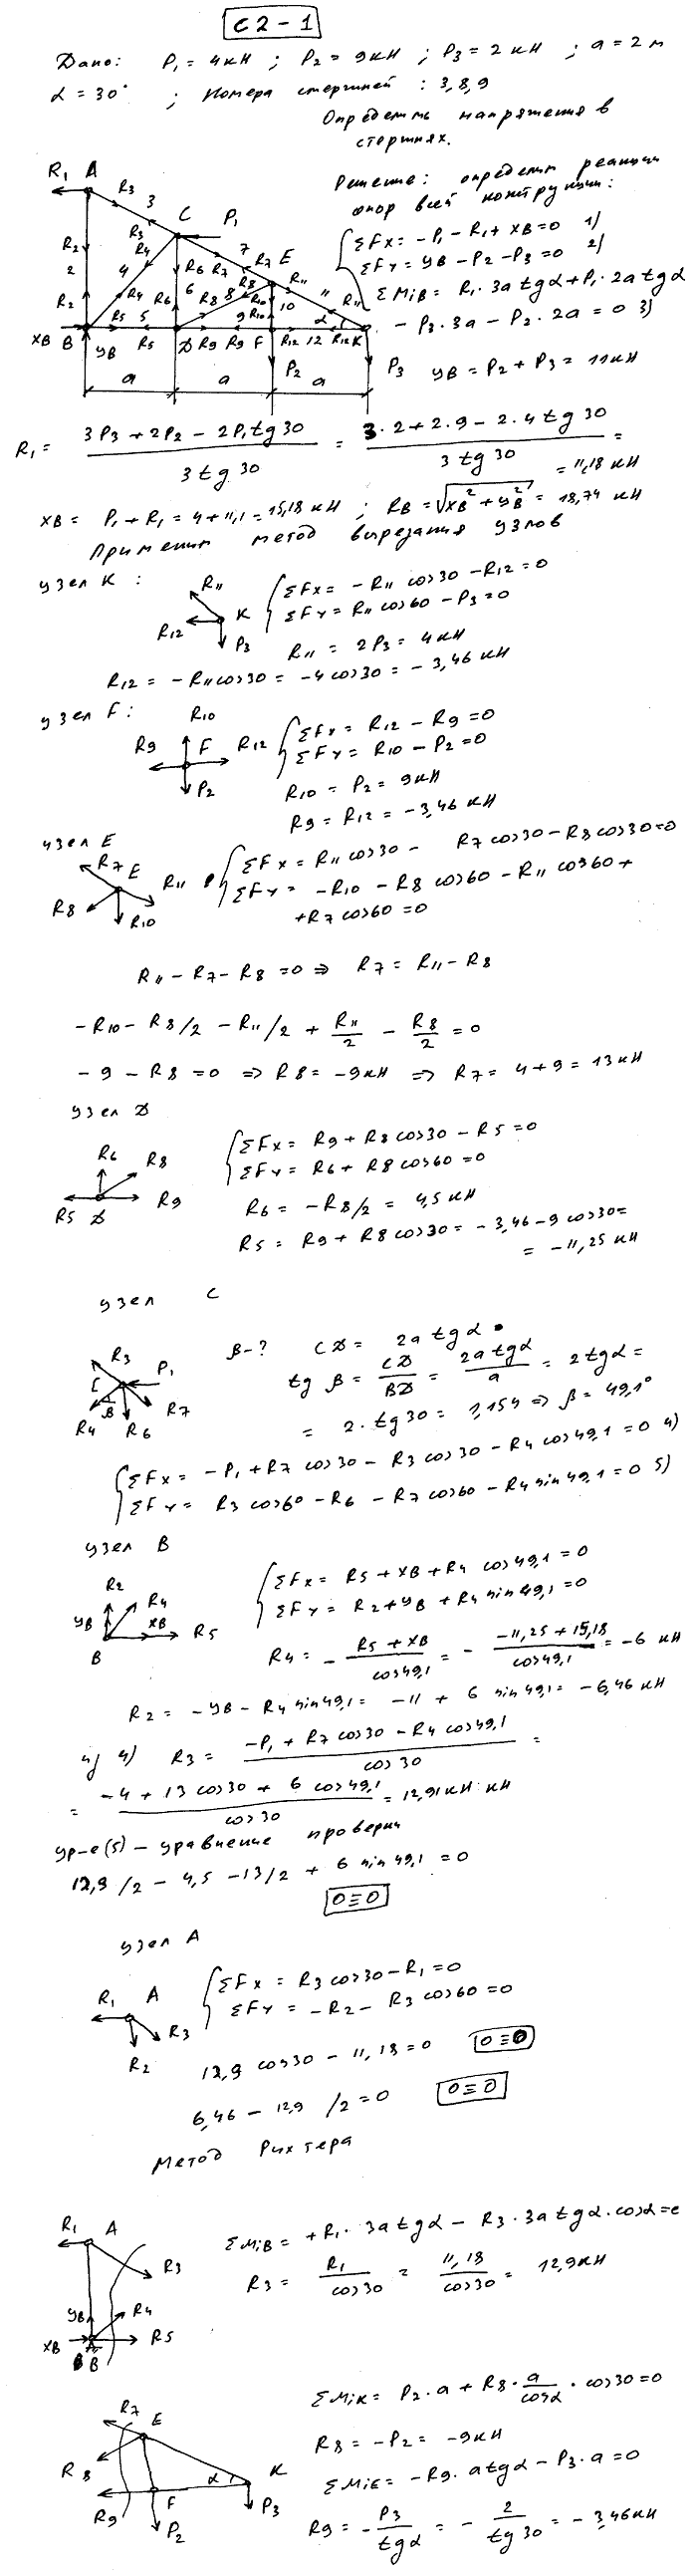 С2-1
Дано: P₁ = 4кН ; P₂ = 9кН ; P₃ = 2кН ; a = 2м
α = 30° ; Номера стержней : 3,8,9
Определить напряжения в
стержнях.
Решение: определим реакции
опор всей конструкции:
ΣFx = -P₁ - R₁ + XB = 0 1)
ΣFy = YB - P₂ - P₃ = 0 2)
ΣMiB = R₁·3a tgα + P₁·2a tgα
- P₃·3a - P₂·2a = 0 3)
YB = P₂ + P₃ = 11кН
R₁ A R₃ 3 C P₁
R₂ 2 R₃ R₄ 4 R₆ R₇ 7 R₇ E R₁₁ 11 R₁₁
R₂ R₄ R₆ 6 R₈ 8 R₈ R₁₀ 10 α
XB B YB R₅ 5 R₅ D R₉ 9 R₉ R₁₀ F R₁₂ 12 R₁₂ K
a a P₂ a P₃
R₁ = (3P₃ + 2P₂ - 2P₁ tg 30) / (3 tg 30) = (3·2 + 2·9 - 2·4 tg 30) / (3 tg 30) =
= 11,18 кН
XB = P₁ + R₁ = 4 + 11,1 = 15,18 кН ; RB = √(XB² + YB²) = 18,74 кН
Применим метод вырезания узлов
узел K :
R₁₁ K R₁₂ P₃
ΣFx = -R₁₁ cos 30 - R₁₂ = 0
ΣFy = R₁₁ cos 60 - P₃ = 0
R₁₁ = 2P₃ = 4кН
R₁₂ = -R₁₁ cos 30 = -4 cos 30 = -3,46 кН
узел F :
R₁₀ R₉ F R₁₂ P₂
ΣFx = R₁₂ - R₉ = 0
ΣFy = R₁₀ - P₂ = 0
R₁₀ = P₂ = 9кН
R₉ = R₁₂ = -3,46 кН
узел E
R₇ E R₁₁ R₈ R₁₀
ΣFx = R₁₁ cos 30 - R₇ cos 30 - R₈ cos 30 = 0
ΣFy = -R₁₀ - R₈ cos 60 - R₁₁ cos 60 +
+ R₇ cos 60 = 0
R₁₁ - R₇ - R₈ = 0 ⇒ R₇ = R₁₁ - R₈
-R₁₀ - R₈/2 - R₁₁/2 + R₁₁/2 - R₈/2 = 0
-9 - R₈ = 0 ⇒ R₈ = -9кН ⇒ R₇ = 4 + 9 = 13кН
узел D
R₆ R₈ R₅ D R₉
ΣFx = R₉ + R₈ cos 30 - R₅ = 0
ΣFy = R₆ + R₈ cos 60 = 0
R₆ = -R₈/2 = 4,5 кН
R₅ = R₉ + R₈ cos 30 = -3,46 - 9 cos 30 =
= -11,25 кН
узел C
R₃ C P₁ β R₄ R₆ R₇
β-? CD = 2a tgα
tg β = CD/BD = 2a tgα / a = 2 tgα =
= 2·tg 30 = 1,154 ⇒ β = 49,1°
ΣFx = -P₁ + R₇ cos 30 - R₃ cos 30 - R₄ cos 49,1 = 0 4)
ΣFy = R₃ cos 60 - R₆ - R₇ cos 60 - R₄ sin 49,1 = 0 5)
узел B
R₂ YB R₄ XB R₅ B
ΣFx = R₅ + XB + R₄ cos 49,1 = 0
ΣFy = R₂ + YB + R₄ sin 49,1 = 0
R₄ = -(R₅ + XB)/cos 49,1 = -(-11,25 + 15,18)/cos 49,1 = -6 кН
R₂ = -YB - R₄ sin 49,1 = -11 + 6 sin 49,1 = -6,46 кН
из 4) R₃ = (-P₁ + R₇ cos 30 - R₄ cos 49,1)/cos 30 =
= (-4 + 13 cos 30 + 6 cos 49,1)/cos 30 = 12,91 кН кН
ур-е (5) - уравнение проверки
12,9/2 - 4,5 - 13/2 + 6 sin 49,1 = 0
0≡0
узел A
R₁ A R₃ R₂
ΣFx = R₃ cos 30 - R₁ = 0
ΣFy = -R₂ - R₃ cos 60 = 0
12,9 cos 30 - 11,18 = 0 0≡0
6,46 - 12,9 /2 = 0 0≡0
Метод Риттера
R₁ A R₃ YB R₄ XB R₅ B
ΣMiB = +R₁·3a tgα - R₃·3a tgα·cosα = 0
R₃ = R₁/cos 30 = 11,18/cos 30 = 12,9кН
R₇ E R₈ α K R₉ F P₂ P₃
ΣMiK = P₂·a + R₈·a/cosα·cos 30 = 0
R₈ = -P₂ = -9кН
ΣMiE = -R₉·a tgα - P₃·a = 0
R₉ = -P₃/tgα = -2/tg 30 = -3,46кН